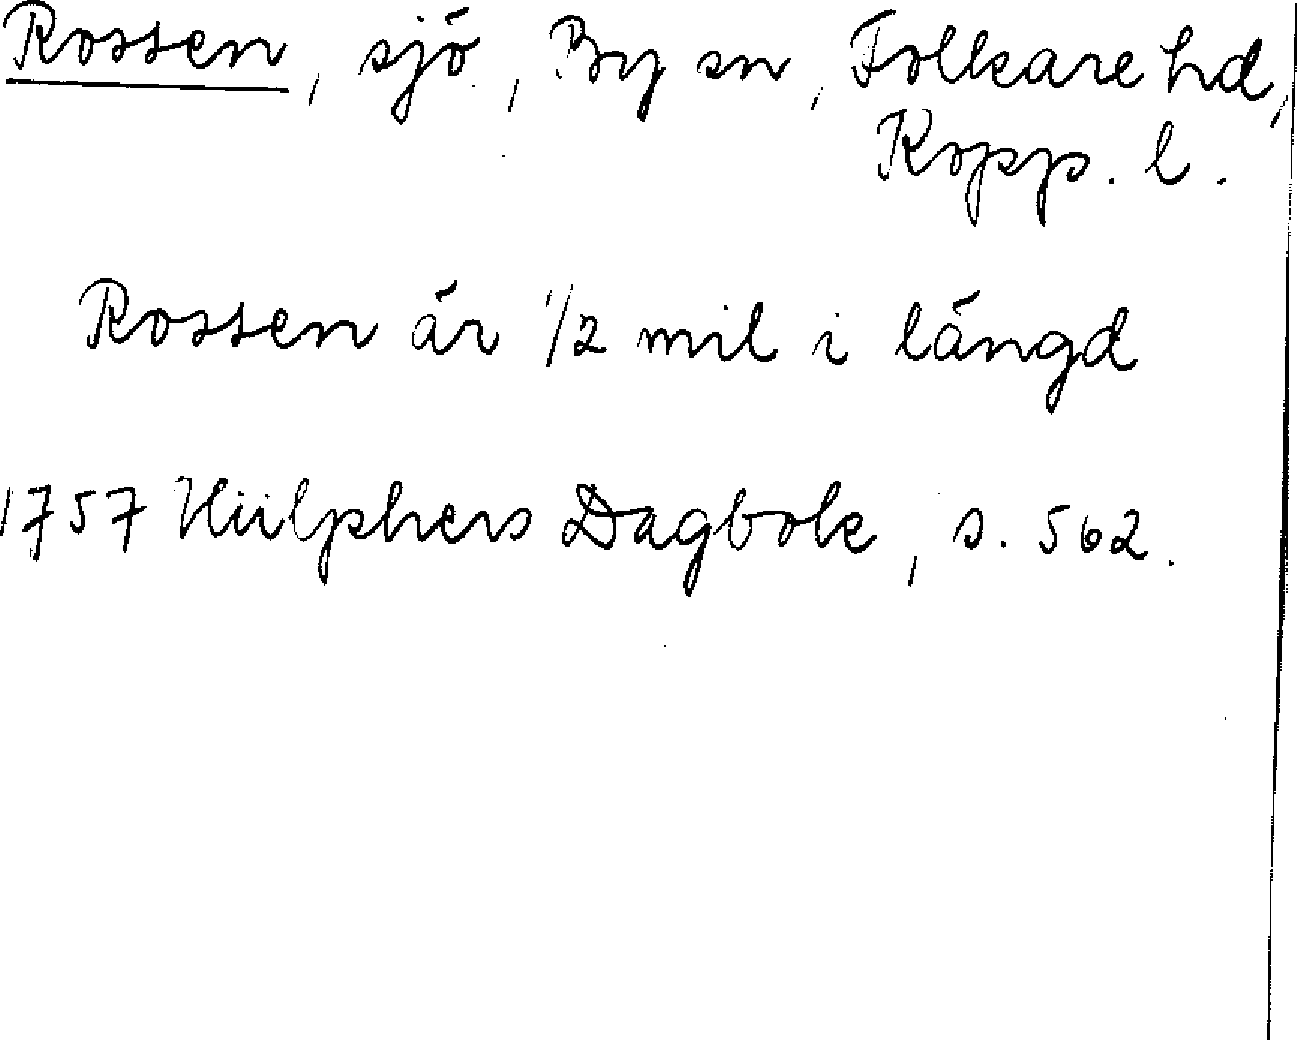 Rossen, sjö, By sn, Folkare hd,
Kopp. l.
Rossen är 1/2 mil i längd
1757 Hülphers Dagbok, s. 562.